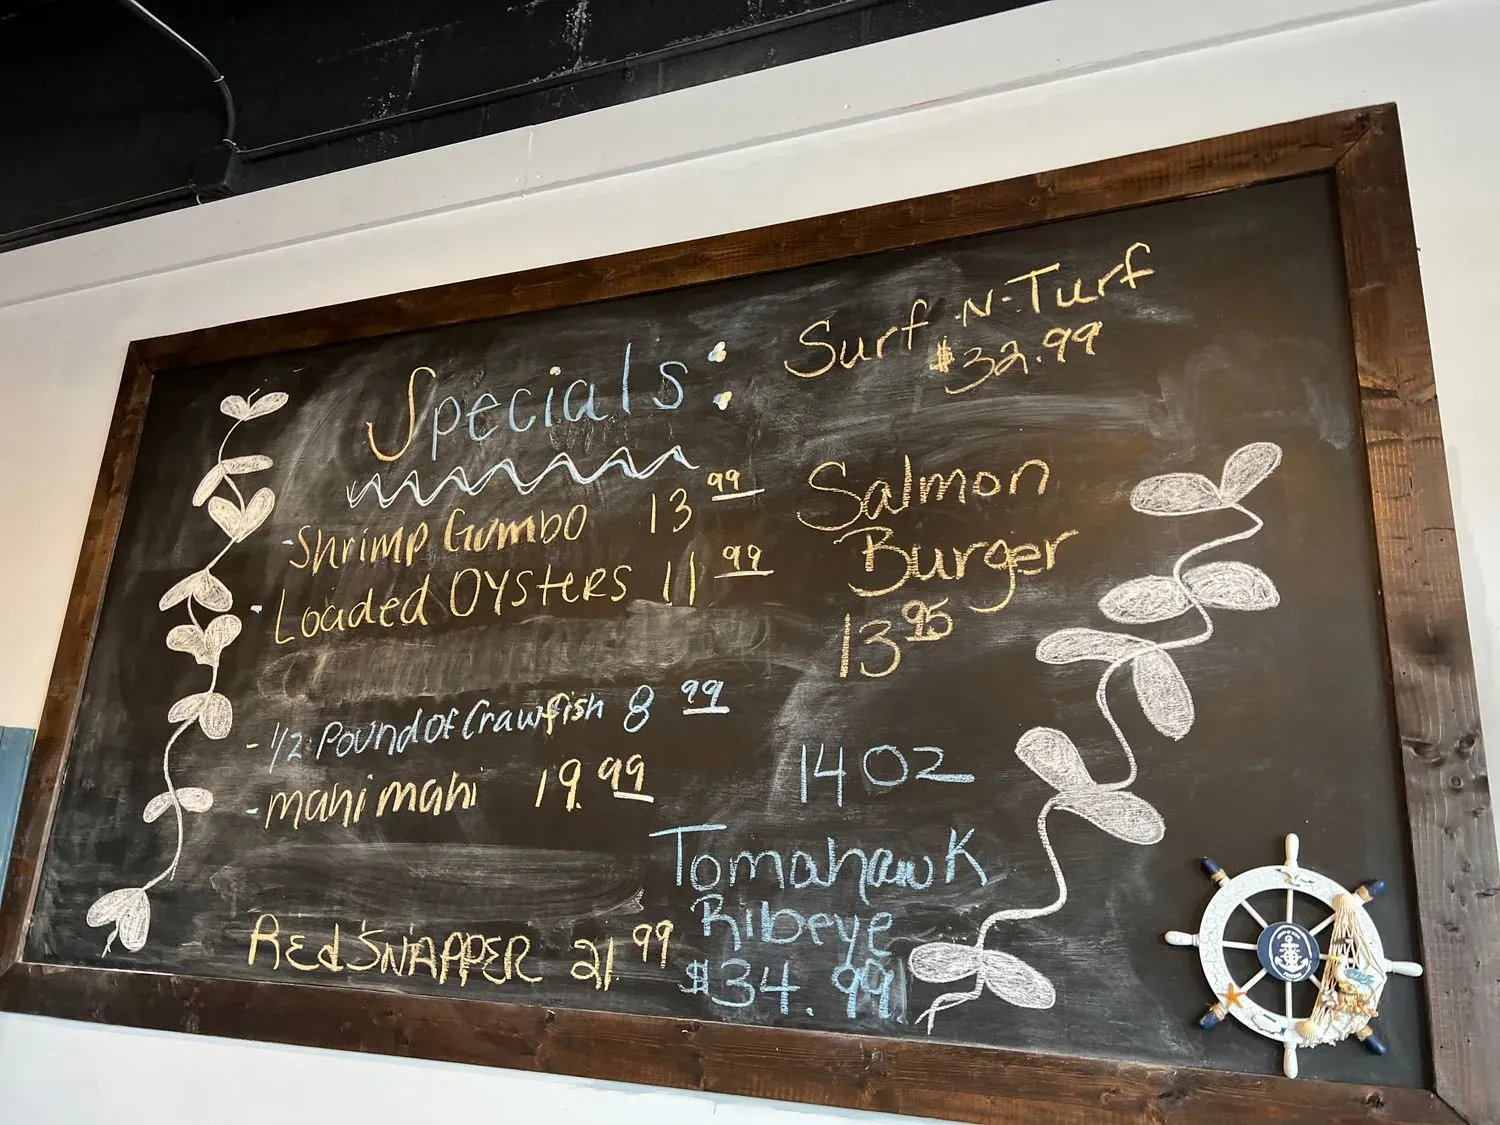 Specials:
-Shrimp Gumbo 13 99
-Loaded OYsteRs 11 99
-1/2 Pound of Crawfish 8 99
-mahi mahi 19.99
Red SNAPPER 21.99
Surf-N-Turf
$32.99
Salmon
Burger
13 95
14 OZ
Tomahawk
Ribeye
$34.99